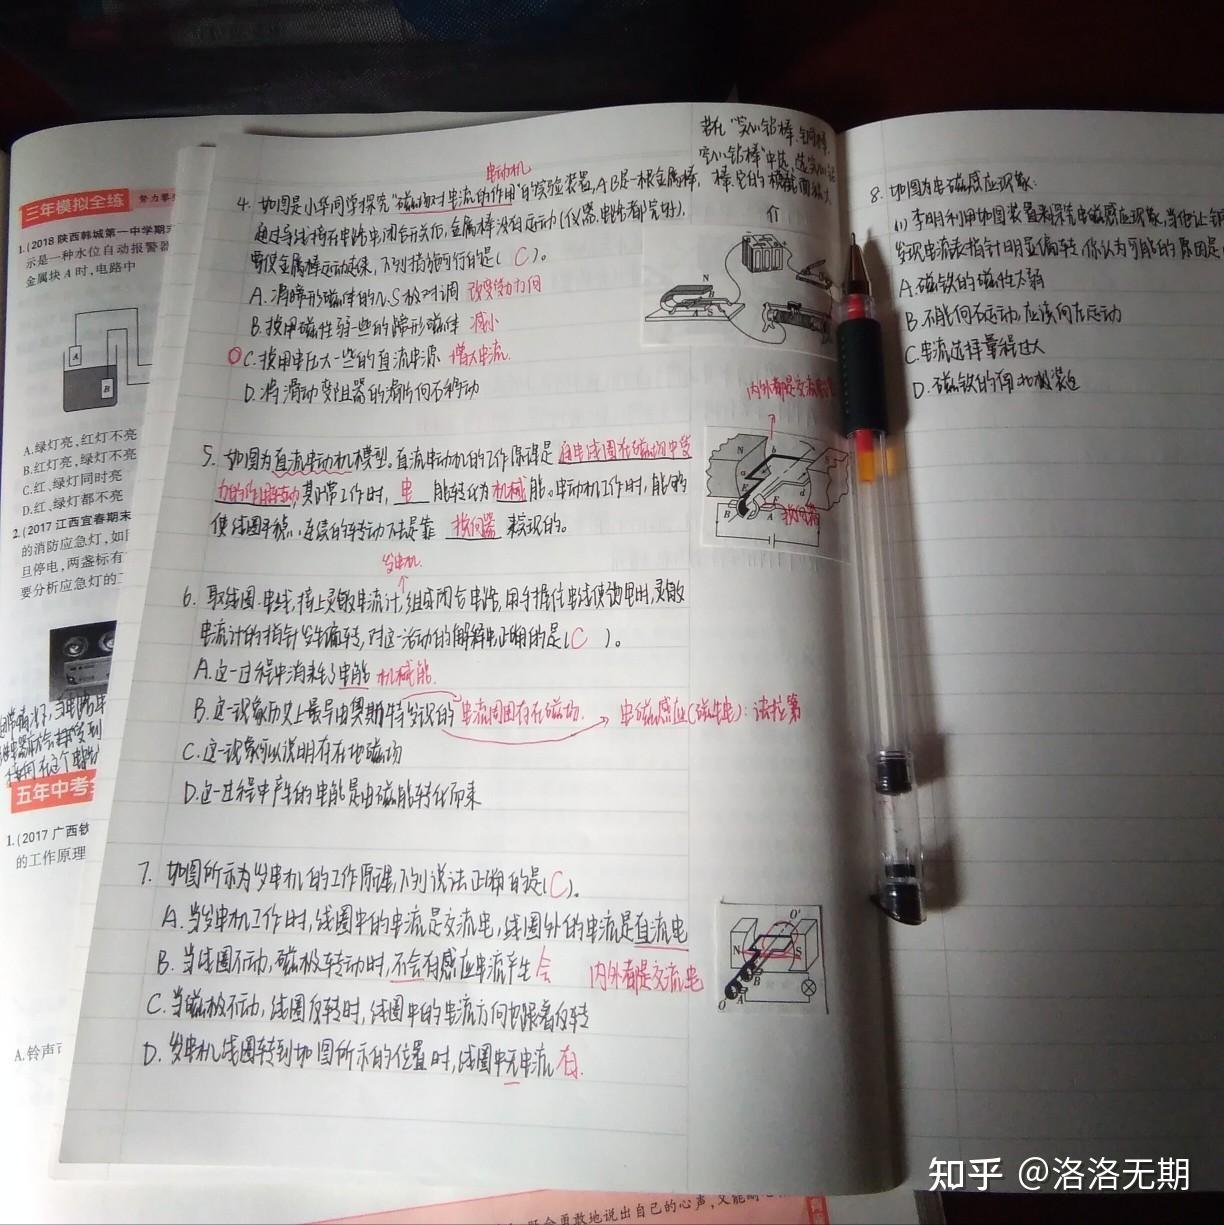 三年模拟全练 努力零
1.(2018 陕西韩城第一中学期末
示是一种水位自动报警器
金属块 A 时,电路中
A
B
A.绿灯亮,红灯不亮
B.红灯亮,绿灯不亮
C.红、绿灯同时亮
D.红、绿灯都不亮
2.(2017 江西宜春期末
的消防应急灯,如
旦停电,两盏标有
要分析应急灯的工
五年中考
1.(2017 广西钦
的工作原理
A.铃声
电动机
4. 如图是小华同学探究“磁场对电流的作用”的实验装置,AB是一根金属棒,
通过导线接在电路中,闭合开关后,金属棒没有运动(仪器、电路都完好),
要使金属棒运动起来,下列措施可行的是( C )。
A.将蹄形磁体的N、S极对调 改变受力方向
B.换用磁性弱一些的蹄形磁体 减小
C.换用电压大一些的直流电源 增大电流.
D.将滑动变阻器的滑片向右移动
若在“实心铝棒、铜棒、
空心铝棒”中选,选
N
A S
内外都是交流
5. 如图为直流电动机模型。直流电动机的工作原理是 通电线圈在磁场中受
力的作用转动 其正常工作时, 电 能转化为机械能。电动机工作时,能够
使线圈平稳、连续的转动下去是靠 换向器 来实现的。
N
b
a
d
B A 换向器
发电机
6. 取线圈、电线,接上灵敏电流计,组成闭合电路,用手握住电线使动电时,灵敏
电流计的指针发生偏转,对这一活动的解释中正确的是( C )。
A.这一过程中消耗了电能 机械能.
B.这一现象历史上最早由奥斯特发现的 电流周围存在磁场. 电磁感应(磁生电):法拉第
C.这一现象可以说明存在地磁场
D.这一过程中产生的电能是由磁能转化而来
7. 如图所示为发电机的工作原理,下列说法正确的是( C )。
A.当发电机工作时,线圈中的电流是交流电,线圈外的电流是直流电
B.当线圈不动,磁极转动时,不会有感应电流产生 会 内外都是交流电
C.当磁极不动,线圈反转时,线圈中的电流方向也跟着反转
D.发电机线圈转到如图所示的位置时,线圈中无电流 有.
O'
N S
B
A
O
8. 如图为电磁感应现象:
(1)李明利用如图装置来探究电磁感应现象,当他让
发现电流表指针明显偏转,你认为可能的原因是
A.磁铁的磁性太弱
B.不能向右运动,应该向左运动
C.电流选择量程过大
D.磁铁的南北极装反
知乎 @洛洛无期